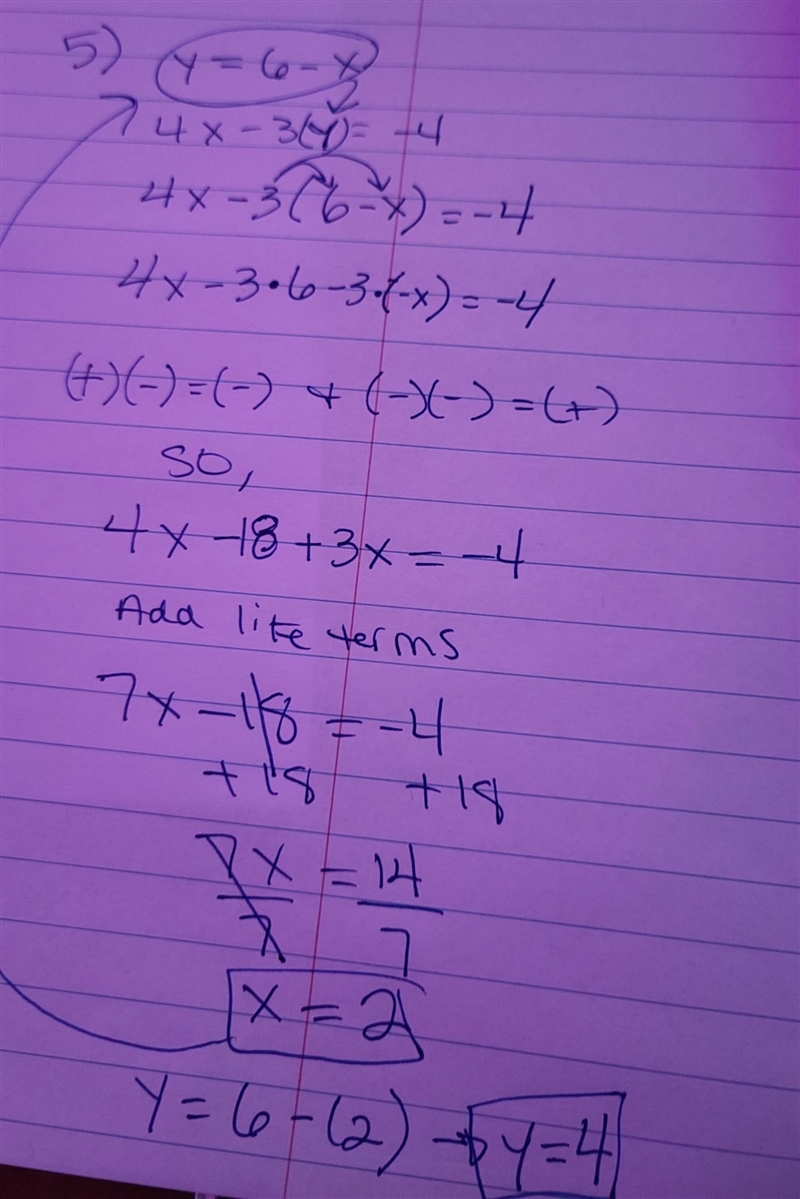 5) y = 6 - x
4x - 3(y) = -4
4x - 3(6 - x) = -4
4x - 3•6 - 3•(-x) = -4
(+)(-) = (-) + (-)(-) = (+)
so,
4x - 18 + 3x = -4
Add like terms
7x - 18 = -4
+ 18 + 18
7x = 14
7 7
x = 2
y = 6 - (2) → y = 4